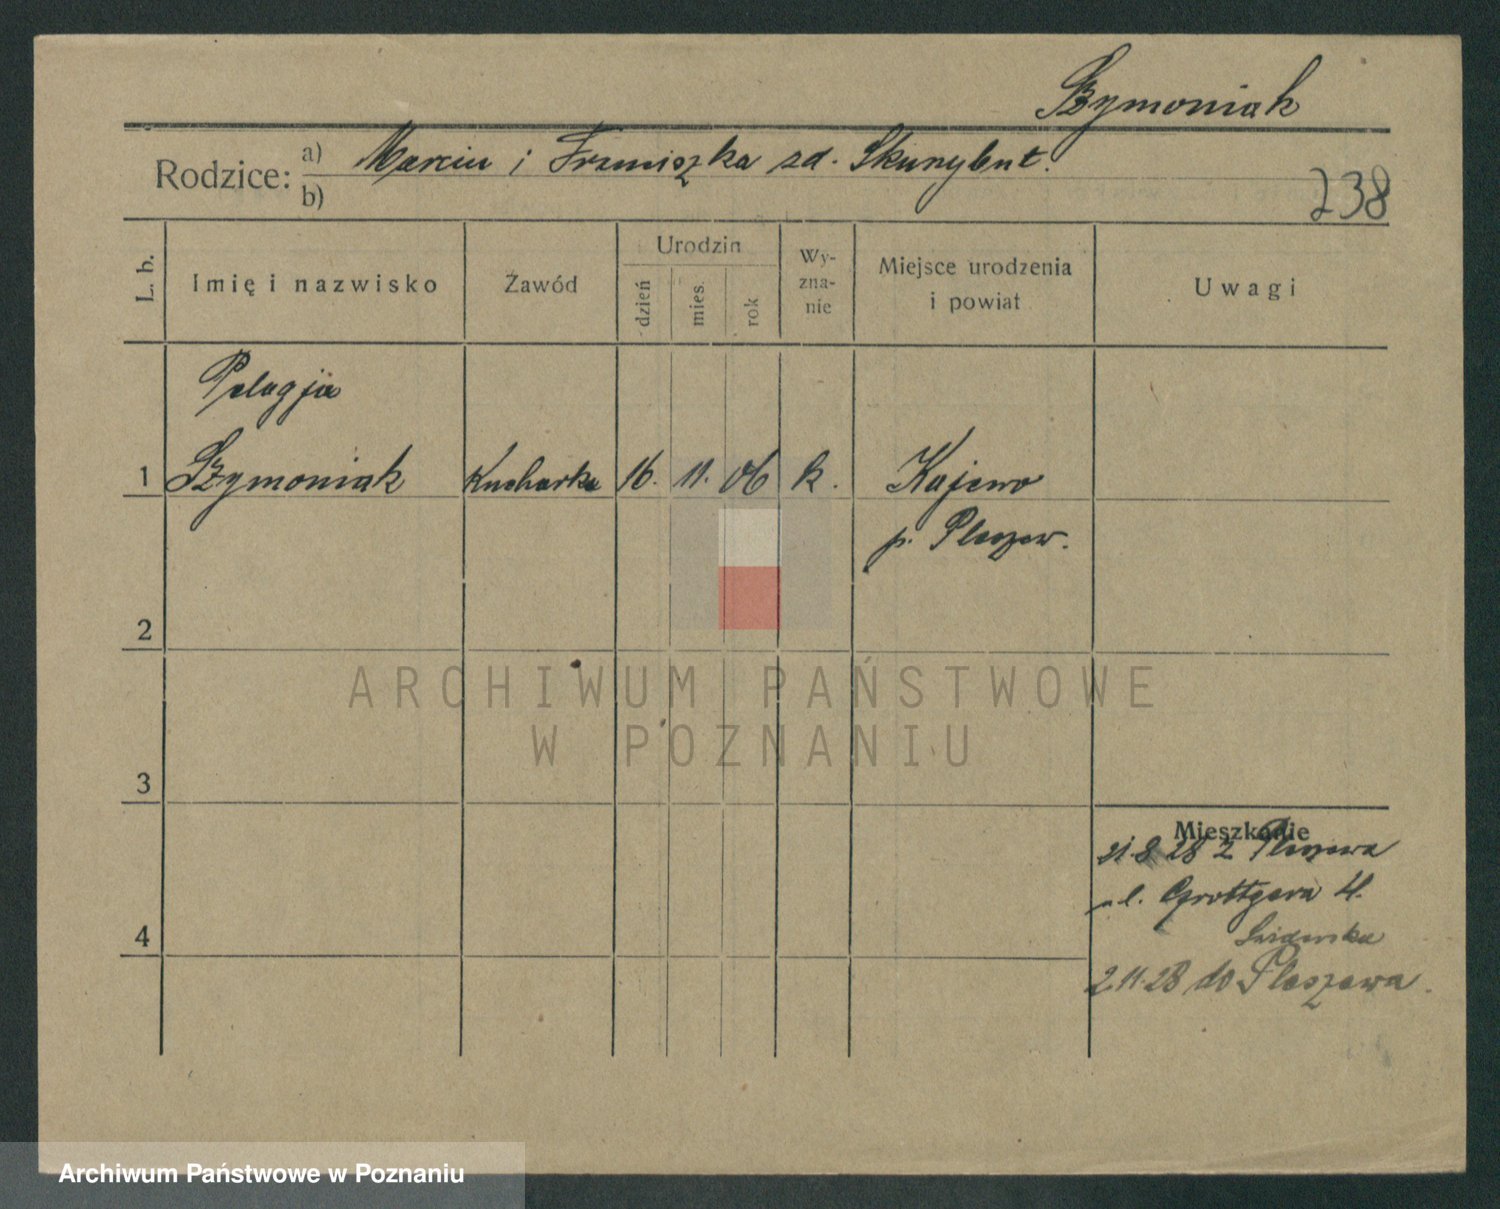 Szymoniak
Rodzice: a) Marcin i Franciszka zd.
b)
238
L. b.
Imię i nazwisko
Zawód
Urodzin
dzień
mies.
rok
Wy-
zna-
nie
Miejsce urodzenia
i powiat
Uwagi
Pelagja
1 Szymoniak Kucharka 16. 11. 06 k. Kajewo
p. Pleszew.
2
3
4
Mieszkanie
28 z Pleszewa
ul. Grottgera 4.
2.11.28 do Pleszewa.
ARCHIWUM PAŃSTWOWE
W POZNANIU
Archiwum Państwowe w Poznaniu